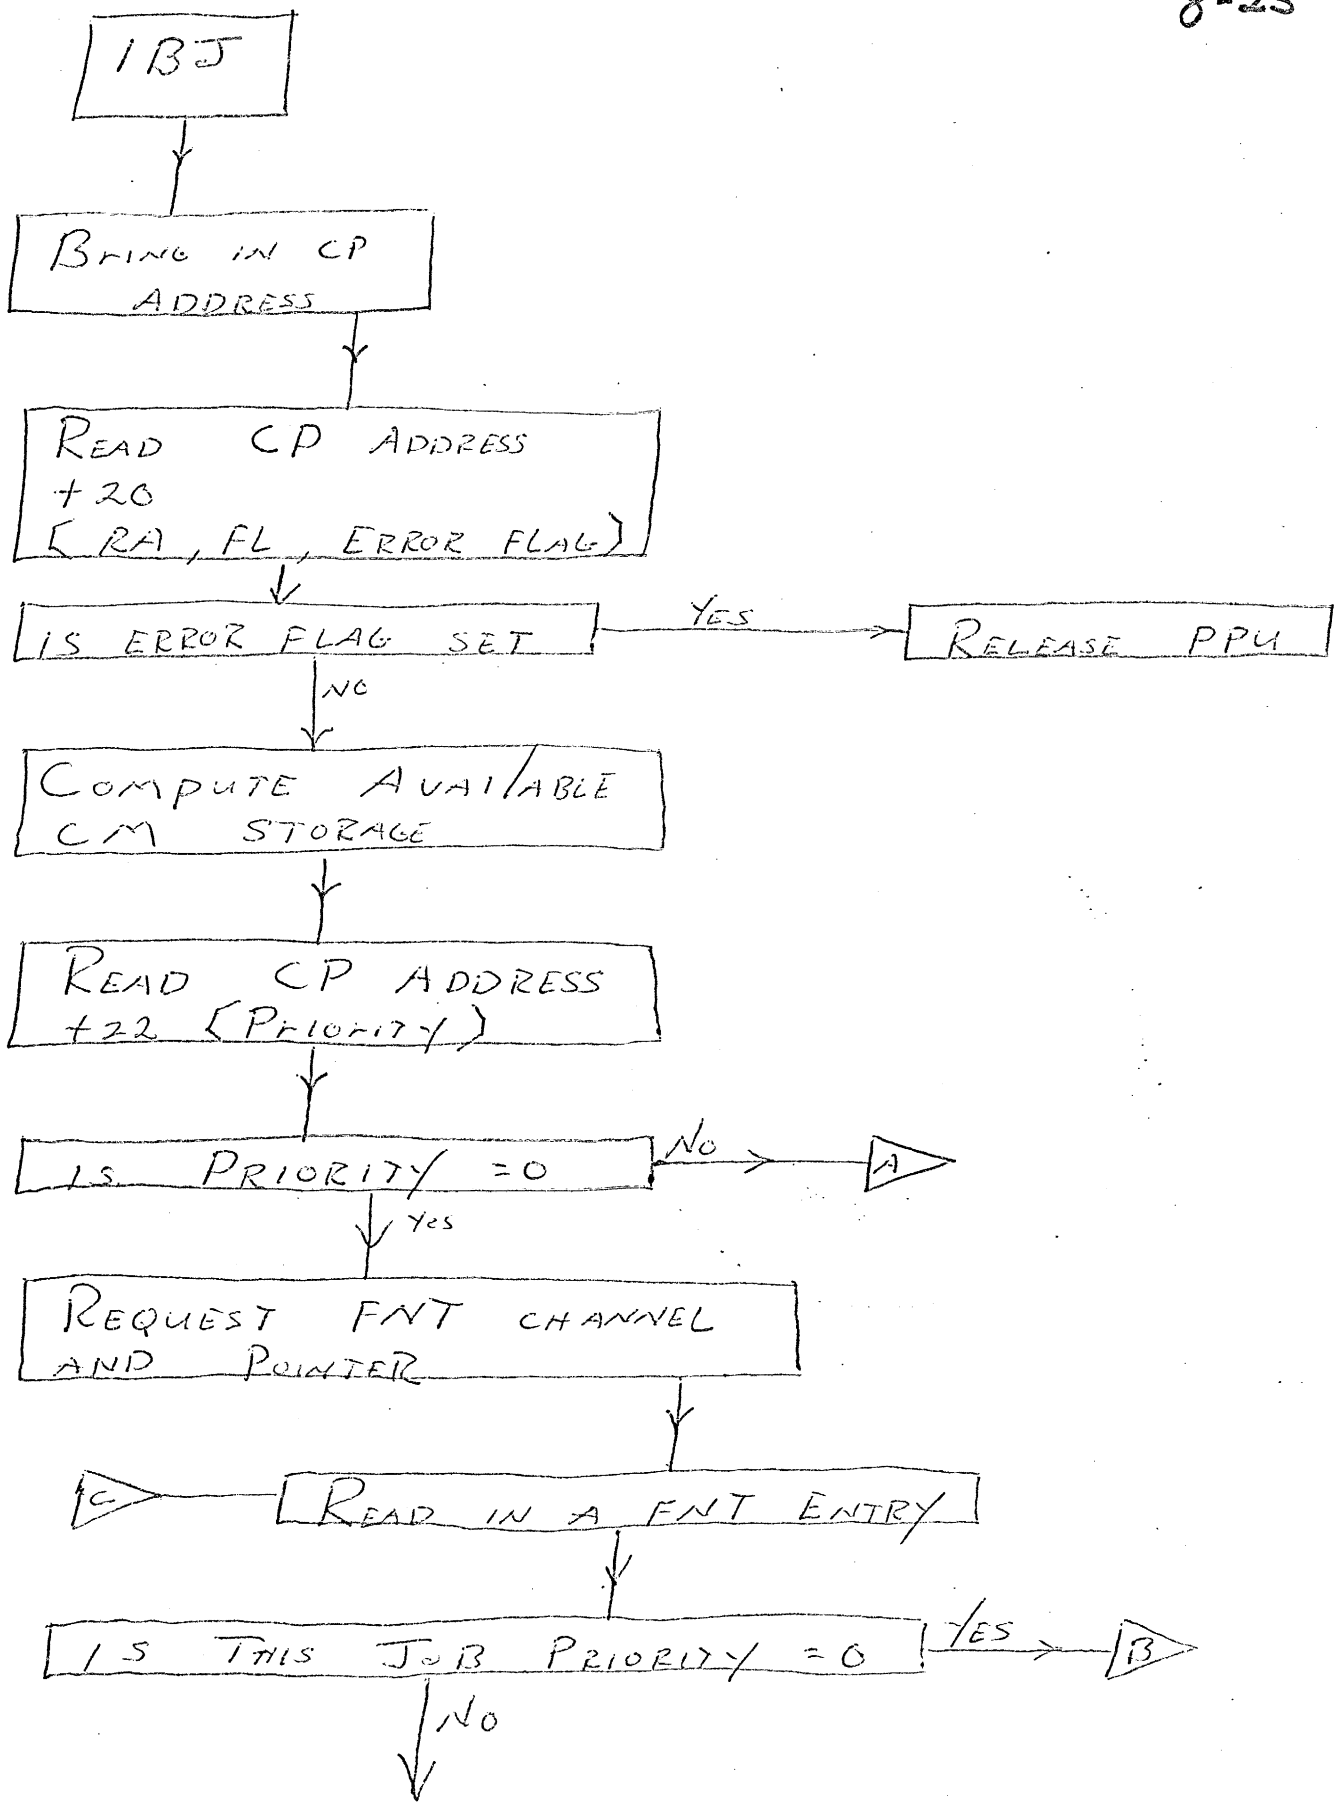 8-23
1BJ
BRING IN CP
ADDRESS
READ CP ADDRESS
+20
[RA, FL, ERROR FLAG]
IS ERROR FLAG SET
YES
RELEASE PPU
NO
COMPUTE AVAILABLE
CM STORAGE
READ CP ADDRESS
+22 [PRIORITY]
IS PRIORITY = 0
NO
A
Yes
REQUEST FNT CHANNEL
AND POINTER
C
READ IN A FNT ENTRY
IS THIS JOB PRIORITY = 0
YES
B
NO